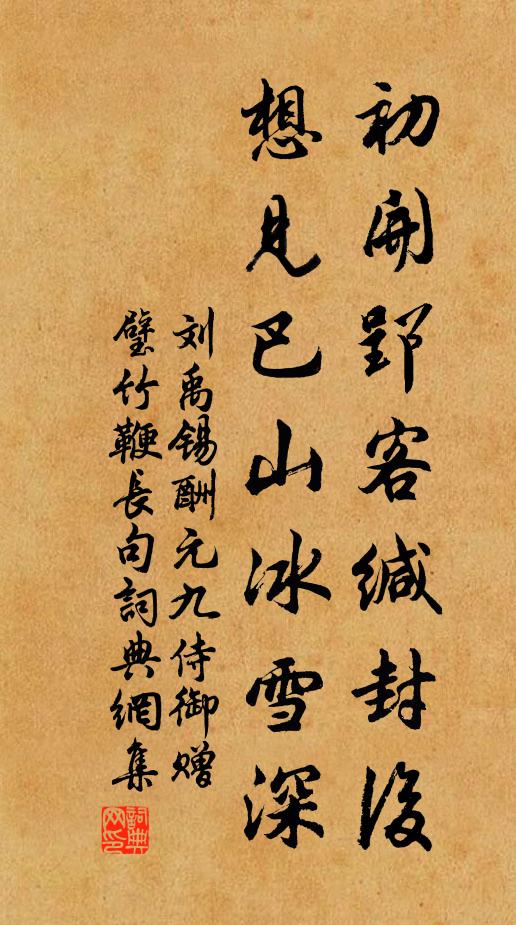 初開郢客缄封後
想見巴山冰雪深
刘禹锡酬元九侍御赠
璧竹鞭長句詞典網集
詞典
网印